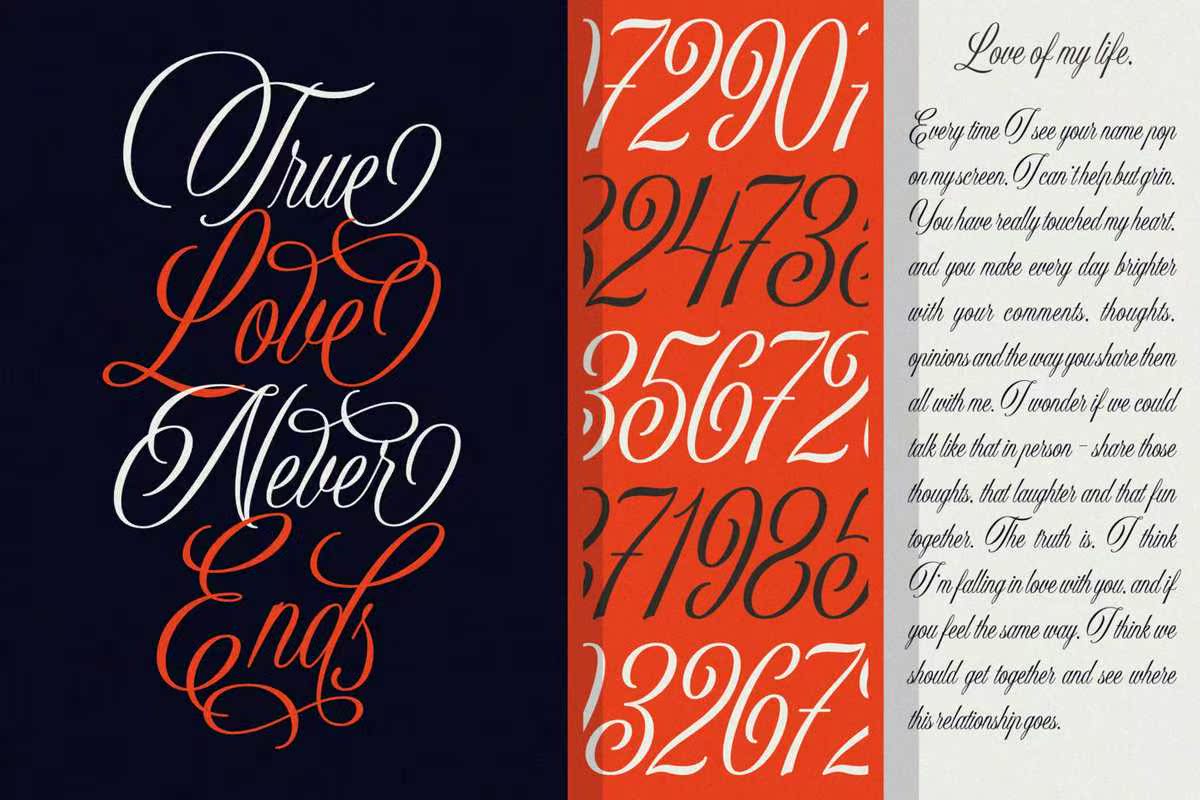 True
Love
Never
Ends
72901
24738
35672
71985
32672
Love of my life.
Every time I see your name pop
on my screen, I can't help but grin.
You have really touched my heart,
and you make every day brighter
with your comments, thoughts,
opinions and the way you share them
all with me. I wonder if we could
talk like that in person – share those
thoughts, that laughter and that fun
together. The truth is, I think
I'm falling in love with you, and if
you feel the same way, I think we
should get together and see where
this relationship goes.